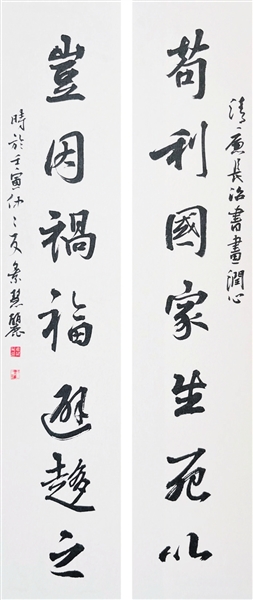 清廉長治書畫潤心
苟利國家生死以
豈因禍福避趨之
時於壬寅仲之夏 慧麗